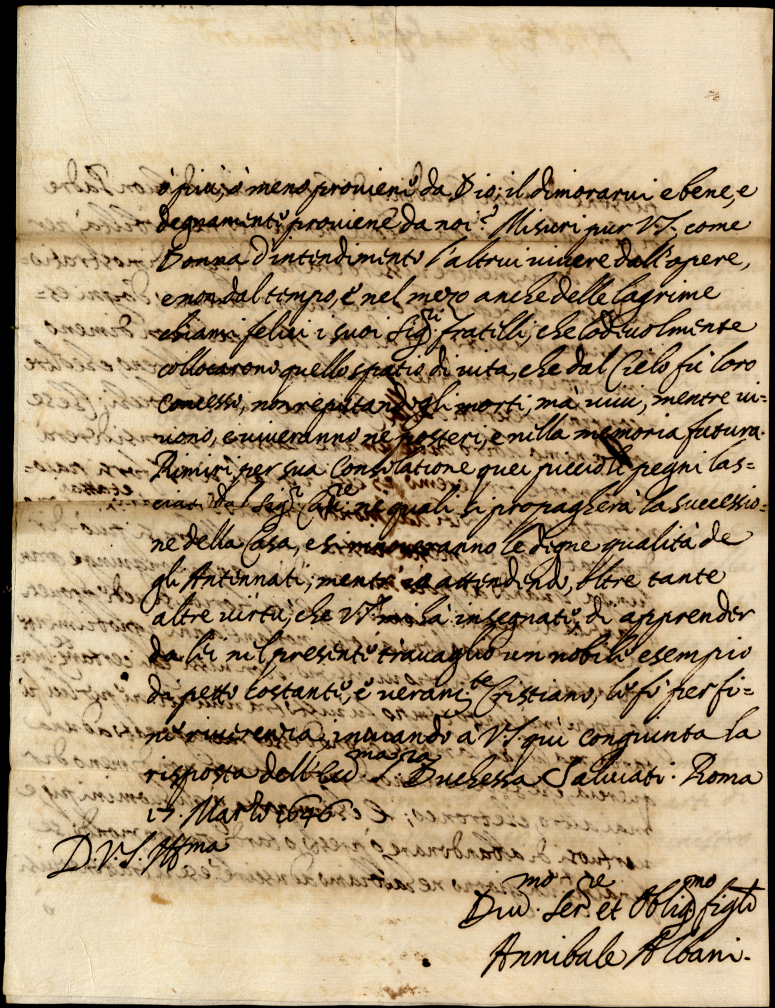 ò più, ò meno proviene da Dio; il dimorarvi e bene, e
degnamente proviene da noi. Misuri pur V.S. come
Donna d'intendimento l'altrui vivere dall'opere,
e non dal tempo, e nel mezo anche delle lagrime
chiami felici i suoi Sig.ri fratelli, che lodevolmente
collocarono quello spatio di vita, che dal Cielo fù loro
concesso, non reputandogli morti, mà vivi, mentre vi-
vono, e viveranno ne posteri, e nella memoria futura.
Rimiri per sua consolatione quei piccioli pegni las-
ciati dal Sig.r ne quali si propagherà la successio-
ne della Casa, e si rinoveranno le digne qualità de
gli Antennati; mentr'io attendendo, oltre tante
altre virtù, che V.S. mi hà insegnate, di apprender
da lei nel presente travaglio un nobile esempio
di petto costante, e veram.te Cristiano, le fò per fi-
ne riverenza, inviando à V.S. qui congiunta la
risposta dell' S.ra Duchessa Salviati. Roma
17. Marzo 1646
D. V. S. Ill.ma
Div.mo Ser.re et Oblig.mo figlio
Annibale Albani.